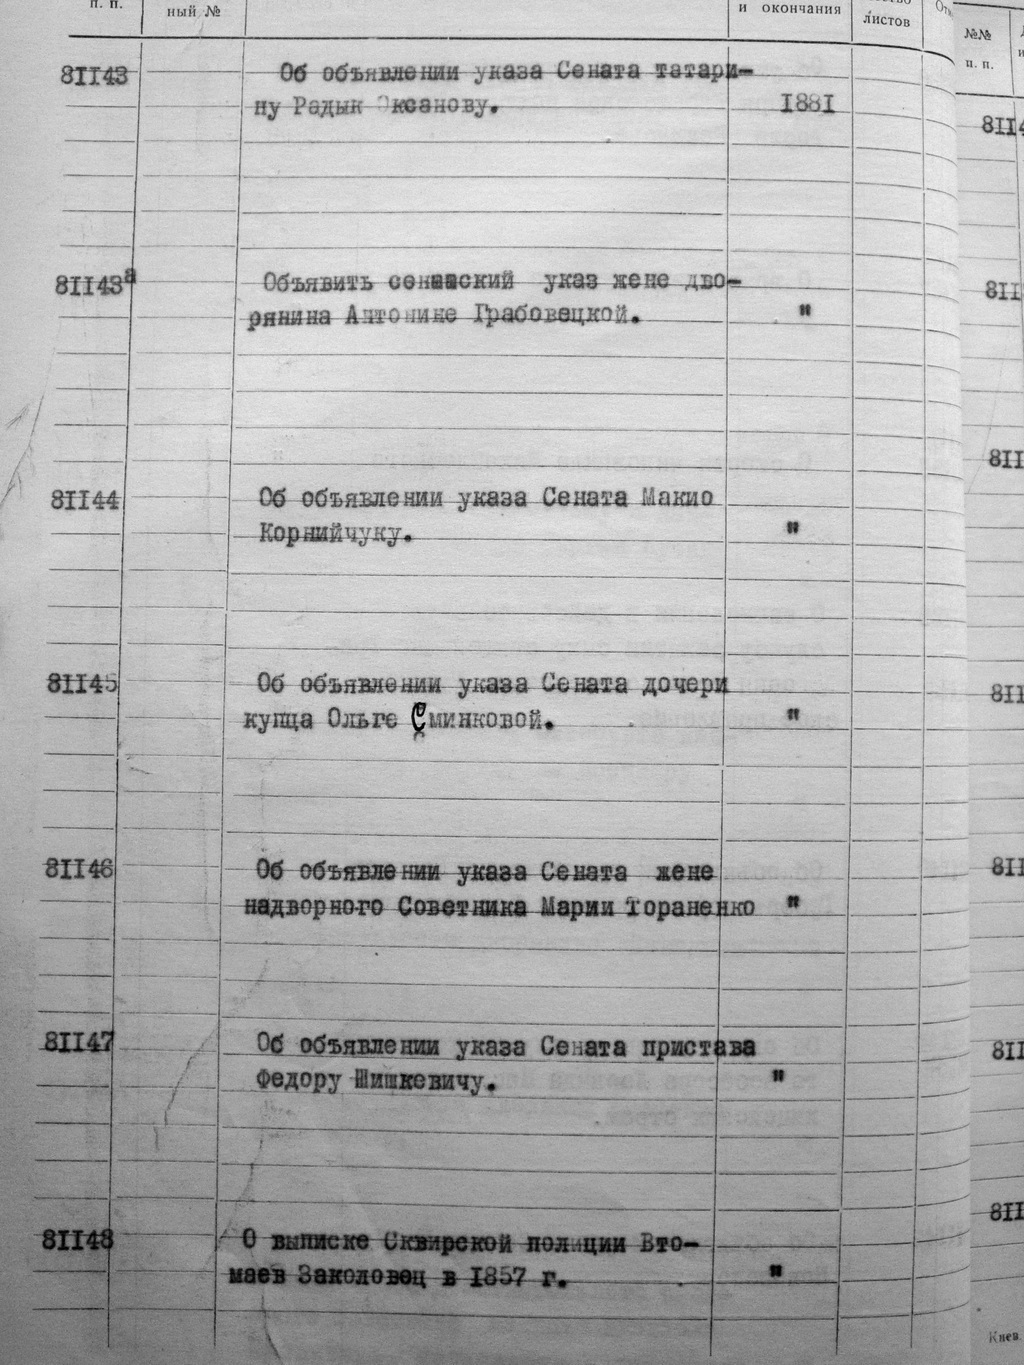 п. п.
ный №
и окончания
листов
№№
п. п.
81143
Об объявлении указа Сената татари-
ну Радык Оксанову.
1881
8114
81143а
Объявить сенатский указ жене дво-
рянина Антонине Грабовецкой.
"
811
811
81144
Об объявлении указа Сената Макио
Корнийчуку.
"
81145
Об объявлении указа Сената дочери
купца Ольге Сминковой.
"
811
81146
Об объявлении указа Сената жене
надворного Советника Марии Тораненко
"
811
81147
Об объявлении указа Сената пристава
Федору Шишкевичу.
"
811
81148
О выписке Сквирской полиции Вто-
маев Заколовец в 1857 г.
"
811
Киев.